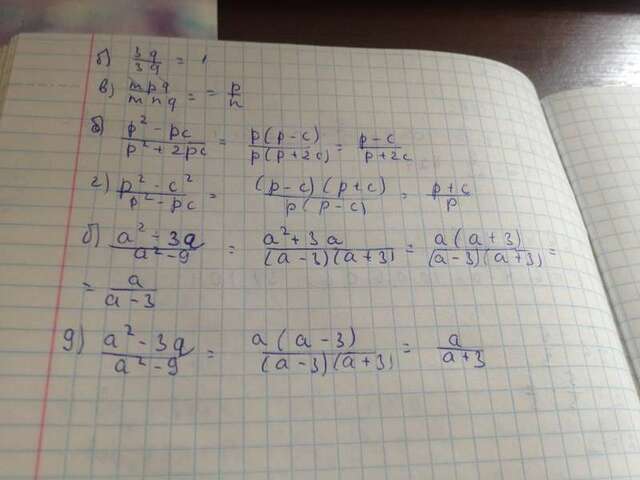 б) 3q/3q = 1
в) mpq/mnq = = p/n
б) p² - pc/p² + 2pc = p(p-c)/p(p+2c) = p-c/p+2c
г) p² - c²/p² - pc = (p-c)(p+c)/p(p-c) = p+c/p
б) a² - 3a/a² - 9 = a² + 3a/(a-3)(a+3) = a(a+3)/(a-3)(a+3) =
= a/a-3
д) a² - 3a/a² - 9 = a(a-3)/(a-3)(a+3) = a/a+3